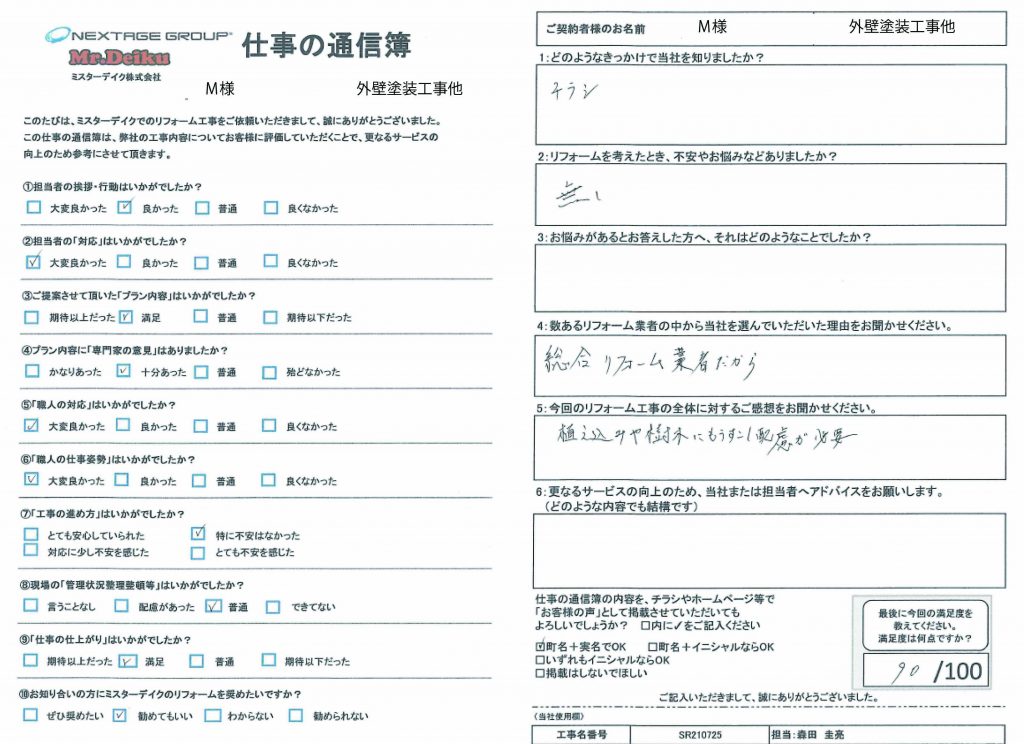 NEXTAGE GROUP
Mr.Deiku
ミスターデイク株式会社
仕事の通信簿
M様 外壁塗装工事他
このたびは、ミスターデイクでのリフォーム工事をご依頼いただきまして、誠にありがとうございました。
この仕事の通信簿は、弊社の工事内容についてお客様に評価していただくことで、更なるサービスの
向上のため参考にさせて頂きます。
①担当者の挨拶・行動はいかがでしたか？
□ 大変良かった ☑ 良かった □ 普通 □ 良くなかった
②担当者の「対応」はいかがでしたか？
☑ 大変良かった □ 良かった □ 普通 □ 良くなかった
③ご提案させて頂いた「プラン内容」はいかがでしたか？
□ 期待以上だった ☑ 満足 □ 普通 □ 期待以下だった
④プラン内容に「専門家の意見」はありましたか？
□ かなりあった ☑ 十分あった □ 普通 □ 殆どなかった
⑤「職人の対応」はいかがでしたか？
☑ 大変良かった □ 良かった □ 普通 □ 良くなかった
⑥「職人の仕事姿勢」はいかがでしたか？
☑ 大変良かった □ 良かった □ 普通 □ 良くなかった
⑦「工事の進め方」はいかがでしたか？
□ とても安心していられた ☑ 特に不安はなかった
□ 対応に少し不安を感じた □ とても不安を感じた
⑧現場の「管理状況整理整頓等」はいかがでしたか？
□ 言うことなし □ 配慮があった ☑ 普通 □ できてない
⑨「仕事の仕上がり」はいかがでしたか？
□ 期待以上だった ☑ 満足 □ 普通 □ 期待以下だった
⑩お知り合いの方にミスターデイクのリフォームを奨めたいですか？
□ ぜひ奨めたい ☑ 勧めてもいい □ わからない □ 勧められない
ご契約者様のお名前 M様 外壁塗装工事他
1：どのようなきっかけで当社を知りましたか？
チラシ
2：リフォームを考えたとき、不安やお悩みなどありましたか？
無し
3：お悩みがあるとお答えした方へ、それはどのようなことでしたか？
4：数あるリフォーム業者の中から当社を選んでいただいた理由をお聞かせください。
総合リフォーム業者だから
5：今回のリフォーム工事の全体に対するご感想をお聞かせください。
植え込みや樹木にもうすこし配慮が必要
6：更なるサービスの向上のため、当社または担当者へアドバイスをお願いします。
（どのような内容でも結構です）
仕事の通信簿の内容を、チラシやホームページ等で
「お客様の声」として掲載させていただいても
よろしいでしょうか？ □内に✓をご記入ください
☑町名＋実名でOK □町名＋イニシャルならOK
□いずれもイニシャルならOK
□掲載はしないでほしい
最後に今回の満足度を
教えてください。
満足度は何点ですか？
90 /100
ご記入いただきまして、誠にありがとうございました。
（当社使用欄）
工事名番号 SR210725 担当：森田 圭亮